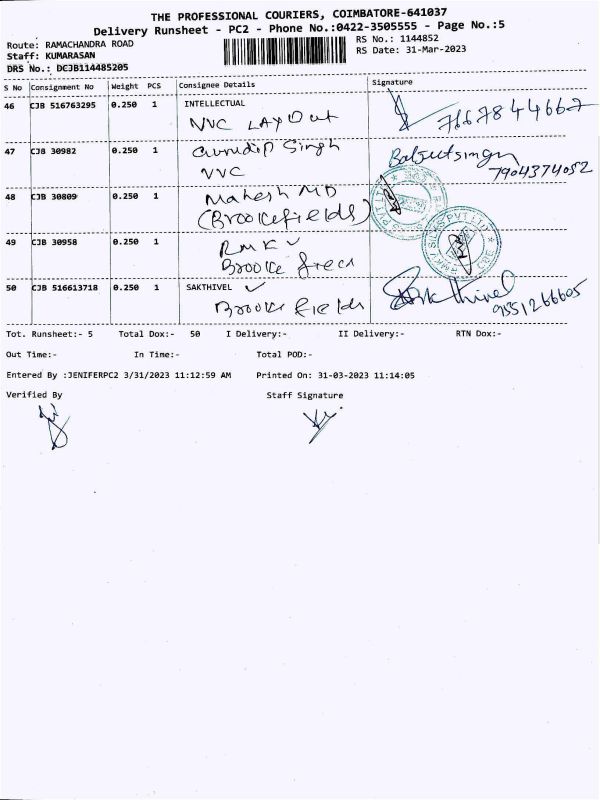 THE PROFESSIONAL COURIERS, COIMBATORE-641037
Delivery Runsheet - PC2 - Phone No.:0422-3505555 - Page No.:5
Route: RAMACHANDRA ROAD
RS No.: 1144852
Staff: KUMARASAN
RS Date: 31-Mar-2023
DRS No.: DCJB114485205
S No Consignment No Weight PCS Consignee Details Signature
46 CJB 516763295 0.250 1 INTELLECTUAL
NVC LAYOut
47 CJB 30982 0.250 1 Gurudip Singh
NVC
7904374052
48 CJB 30809 0.250 1 Mahesh MD
(Brookefields)
49 CJB 30958 0.250 1 RMKV
Brooke
50 CJB 516613718 0.250 1 SAKTHIVEL
Brooke fields
Sakthivel
9551266605
Tot. Runsheet:- 5 Total Dox:- 50 I Delivery:- II Delivery:- RTN Dox:-
Out Time:- In Time:- Total POD:-
Entered By :JENIFERPC2 3/31/2023 11:12:59 AM Printed On: 31-03-2023 11:14:05
Verified By Staff Signature